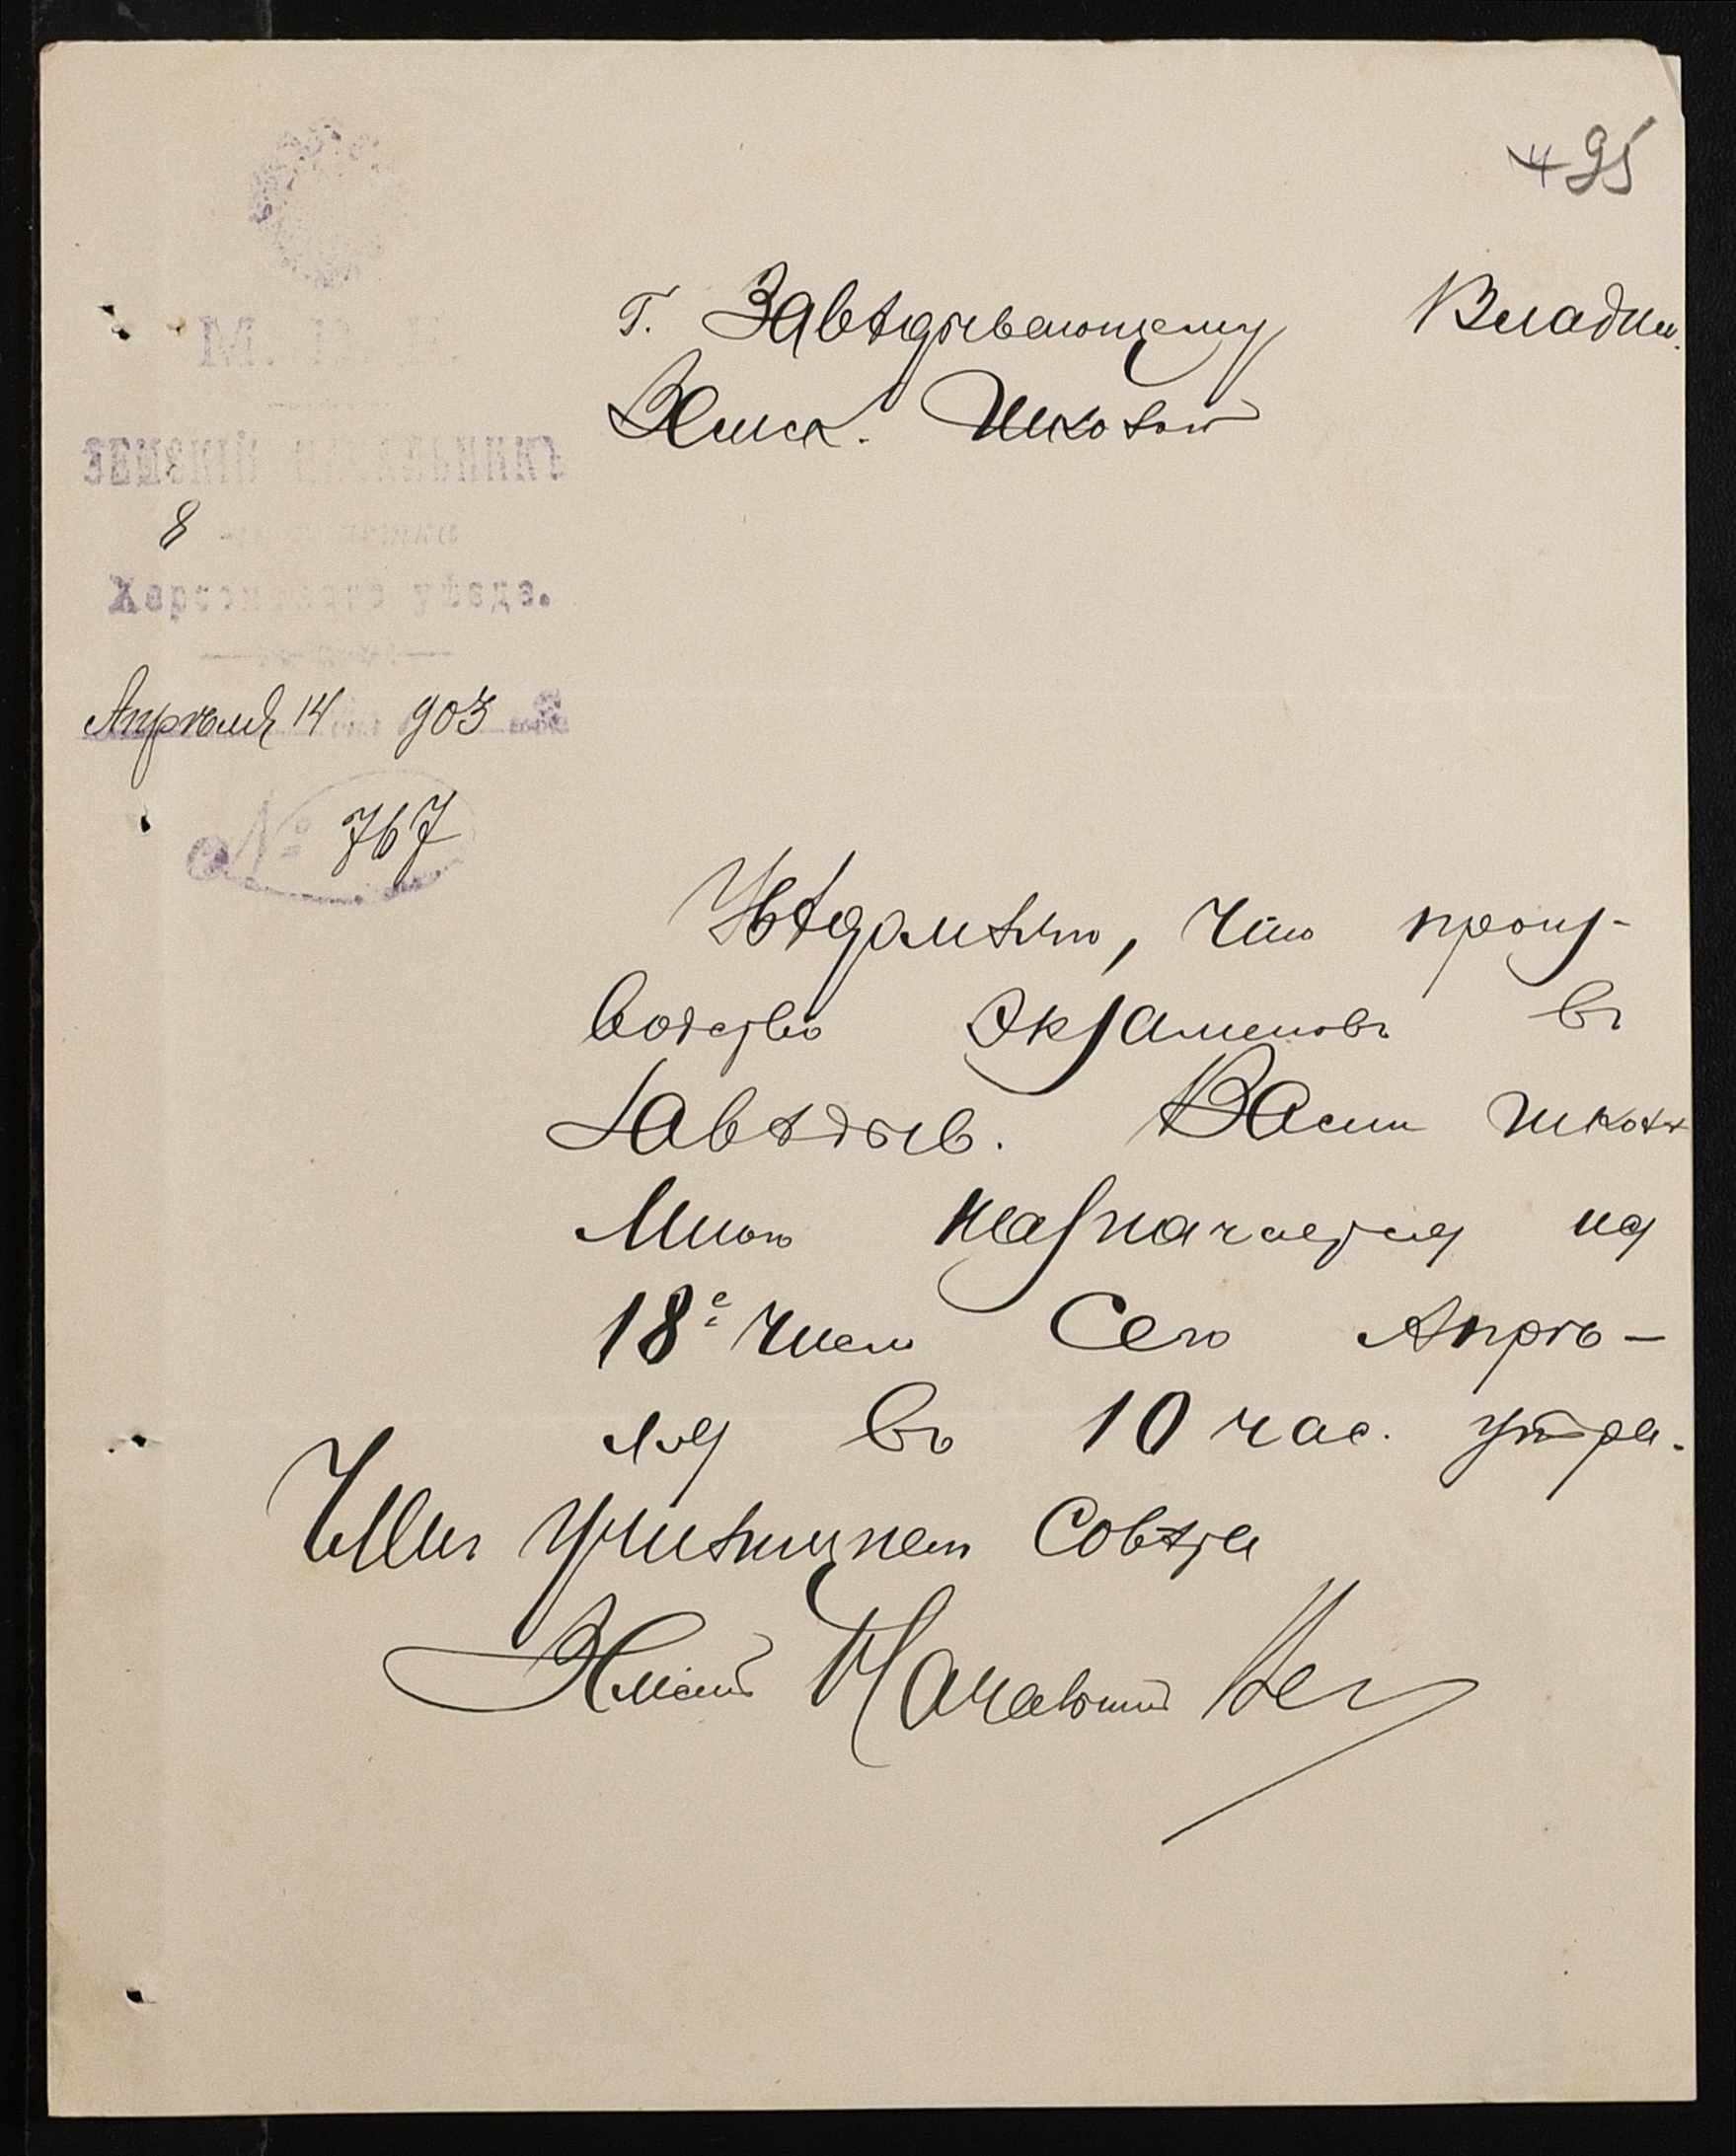 95
Г. Завѣдывающему Владим.
Земск. Школой
М. В. Д.
ЗЕМСКІЙ НАЧАЛЬНИКЪ
8 участка
Херсонскаго уѣзда.
Апрѣля 14 903
№ 767
Увѣдомляю, что произ-
водство Экзаменовъ въ
Завѣдыв. Вами школѣ
Мною назначается на
18е число Сего Апрѣ-
ля въ 10 час. утра.
Членъ Училищнаго Совѣта
Земскій Начальникъ